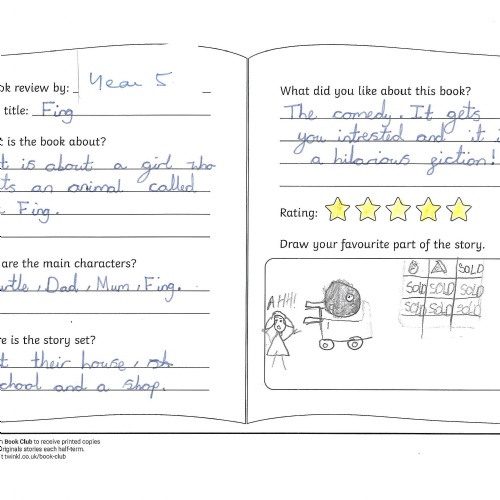 ok review by: Year 5
title: Fing
t is the book about?
t is about a girl who
ts an animal called
Fing.
are the main characters?
rtle, Dad, Mum, Fing.
re is the story set?
t their house,
chool and a shop.
n Book Club to receive printed copies
Originals stories each half-term.
t twinkl.co.uk/book-club
What did you like about this book?
The comedy. It gets
you intrested and it i
a hilarious fiction!
Rating:
Draw your favourite part of the story.
AHH!
SOLD
SOLD SOLD SOLD
SOLD SOLD SOLD